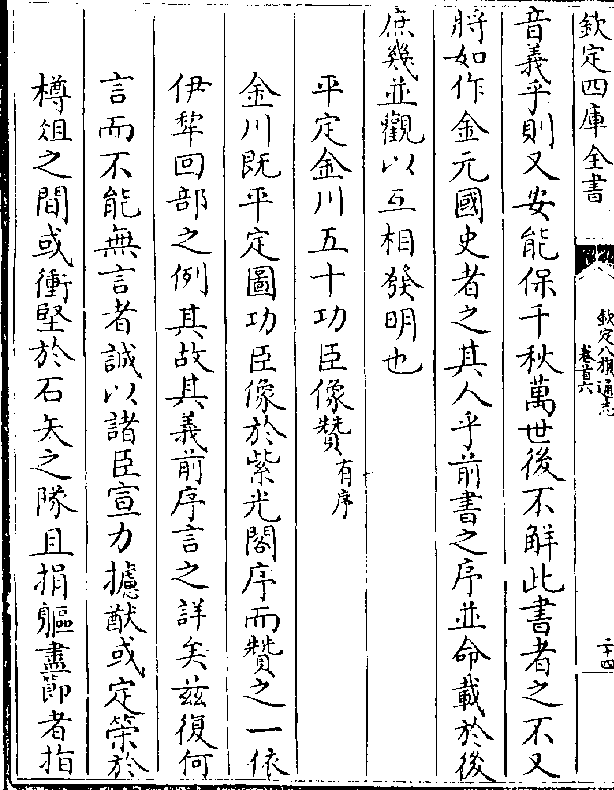 欽定四庫全書
欽定八旗通志
卷首六
二十四
音義乎則又安能保千秋萬世後不解此書者之不又
將如作金元國史者之其人乎前書之序並命載於後
庶幾並觀以互相發明也
平定金川五十功臣像贊有序
金川既平定圖功臣像於紫光閣序而贊之一依
伊犂回部之例其故其義前序言之詳矣兹復何
言而不能無言者誠以諸臣宣力攄猷或定策於
樽俎之間或衝堅於石矢之隊且捐軀盡節者指